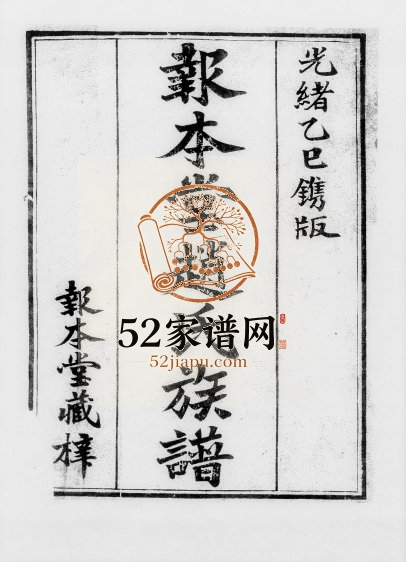 光緒乙巳鐫版
報本堂趙氏族譜
報本堂藏梓
52家谱网
52jiapu.com